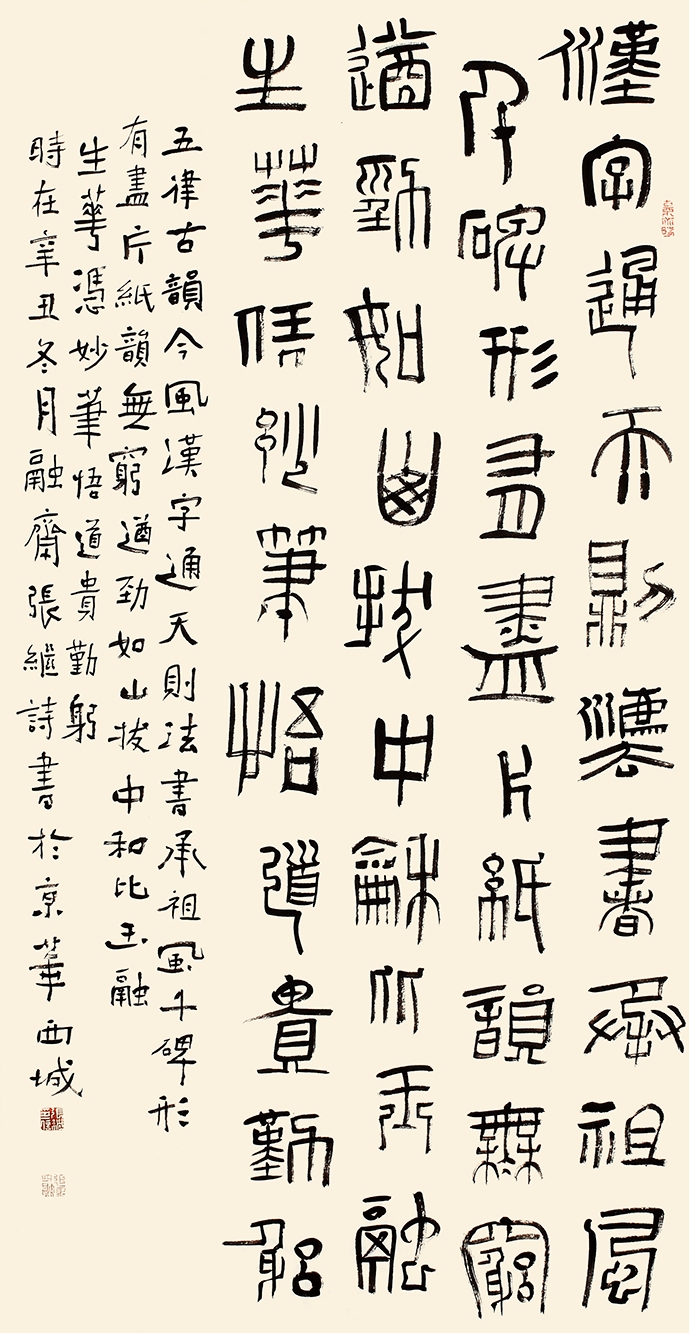 漢字通天則灋書承祖風
千碑形有盡片紙韻無窮
遒勁如山拔中龢比玉融
生華憑妙筆悟道貴勤躬
五律古韻今風漢字通天則法書承祖風千碑形
有盡片紙韻無窮遒勁如山拔中和比玉融
生華憑妙筆悟道貴勤躬
時在辛丑冬月融齋張繼詩書於京華西城